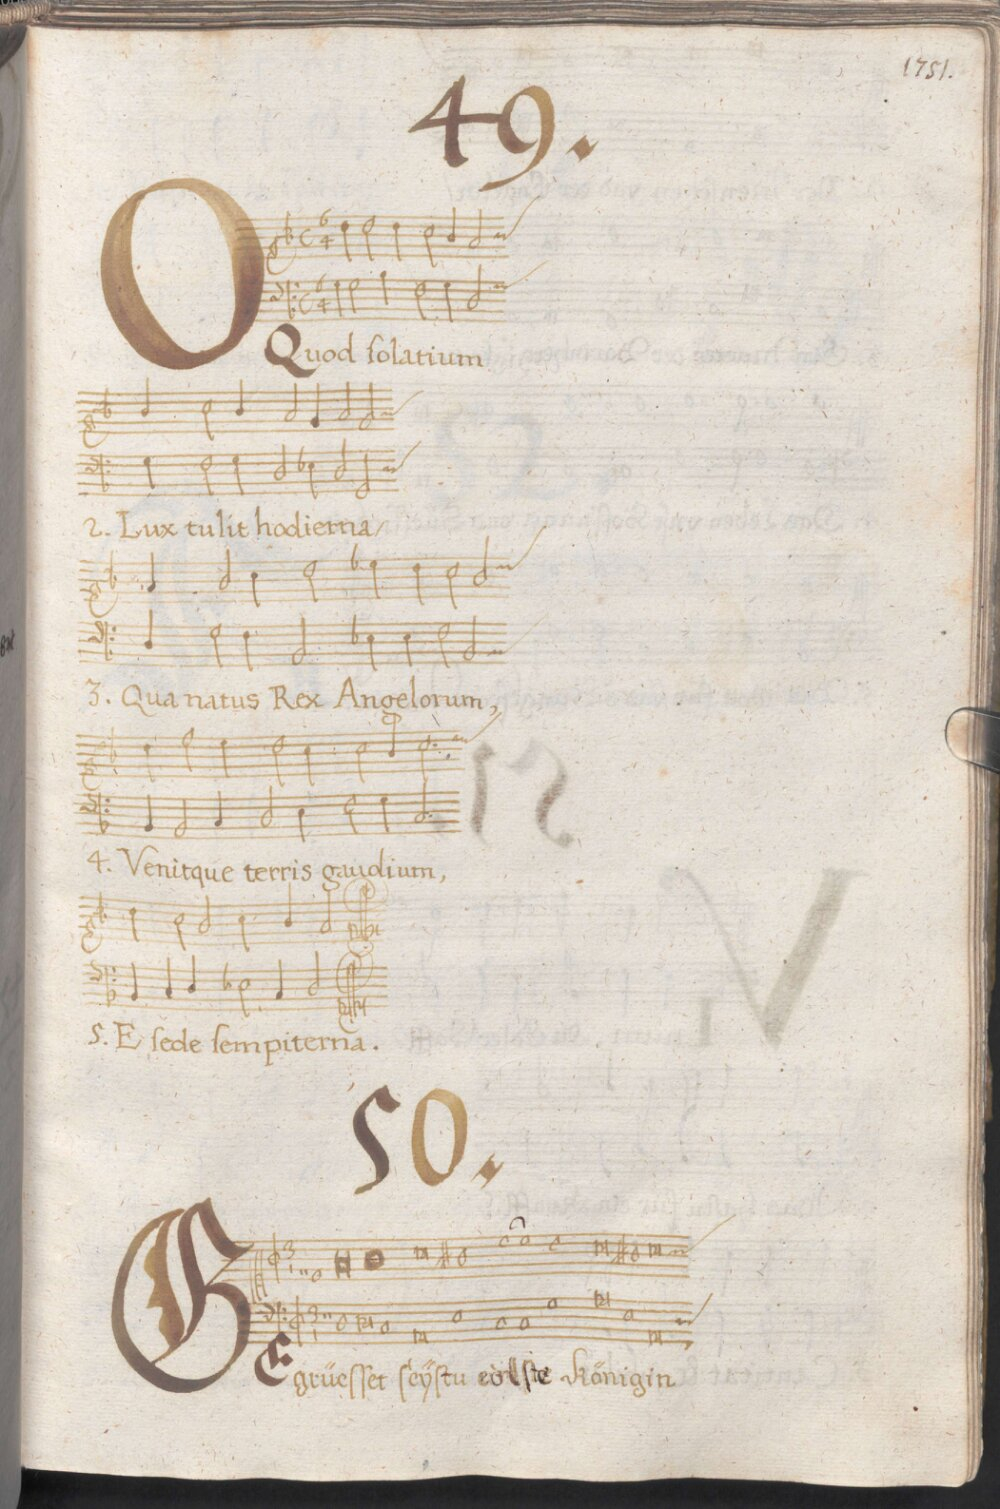 1751.
49.
O Quod solatium
2. Lux tulit hodierna,
3. Qua natus Rex Angelorum,
4. Venitque terris gaudium,
5. E sede sempiterna.
50.
GEgrüesset seÿstu edlste Königin